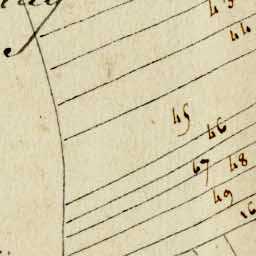 43
44
45
46
47
48
49